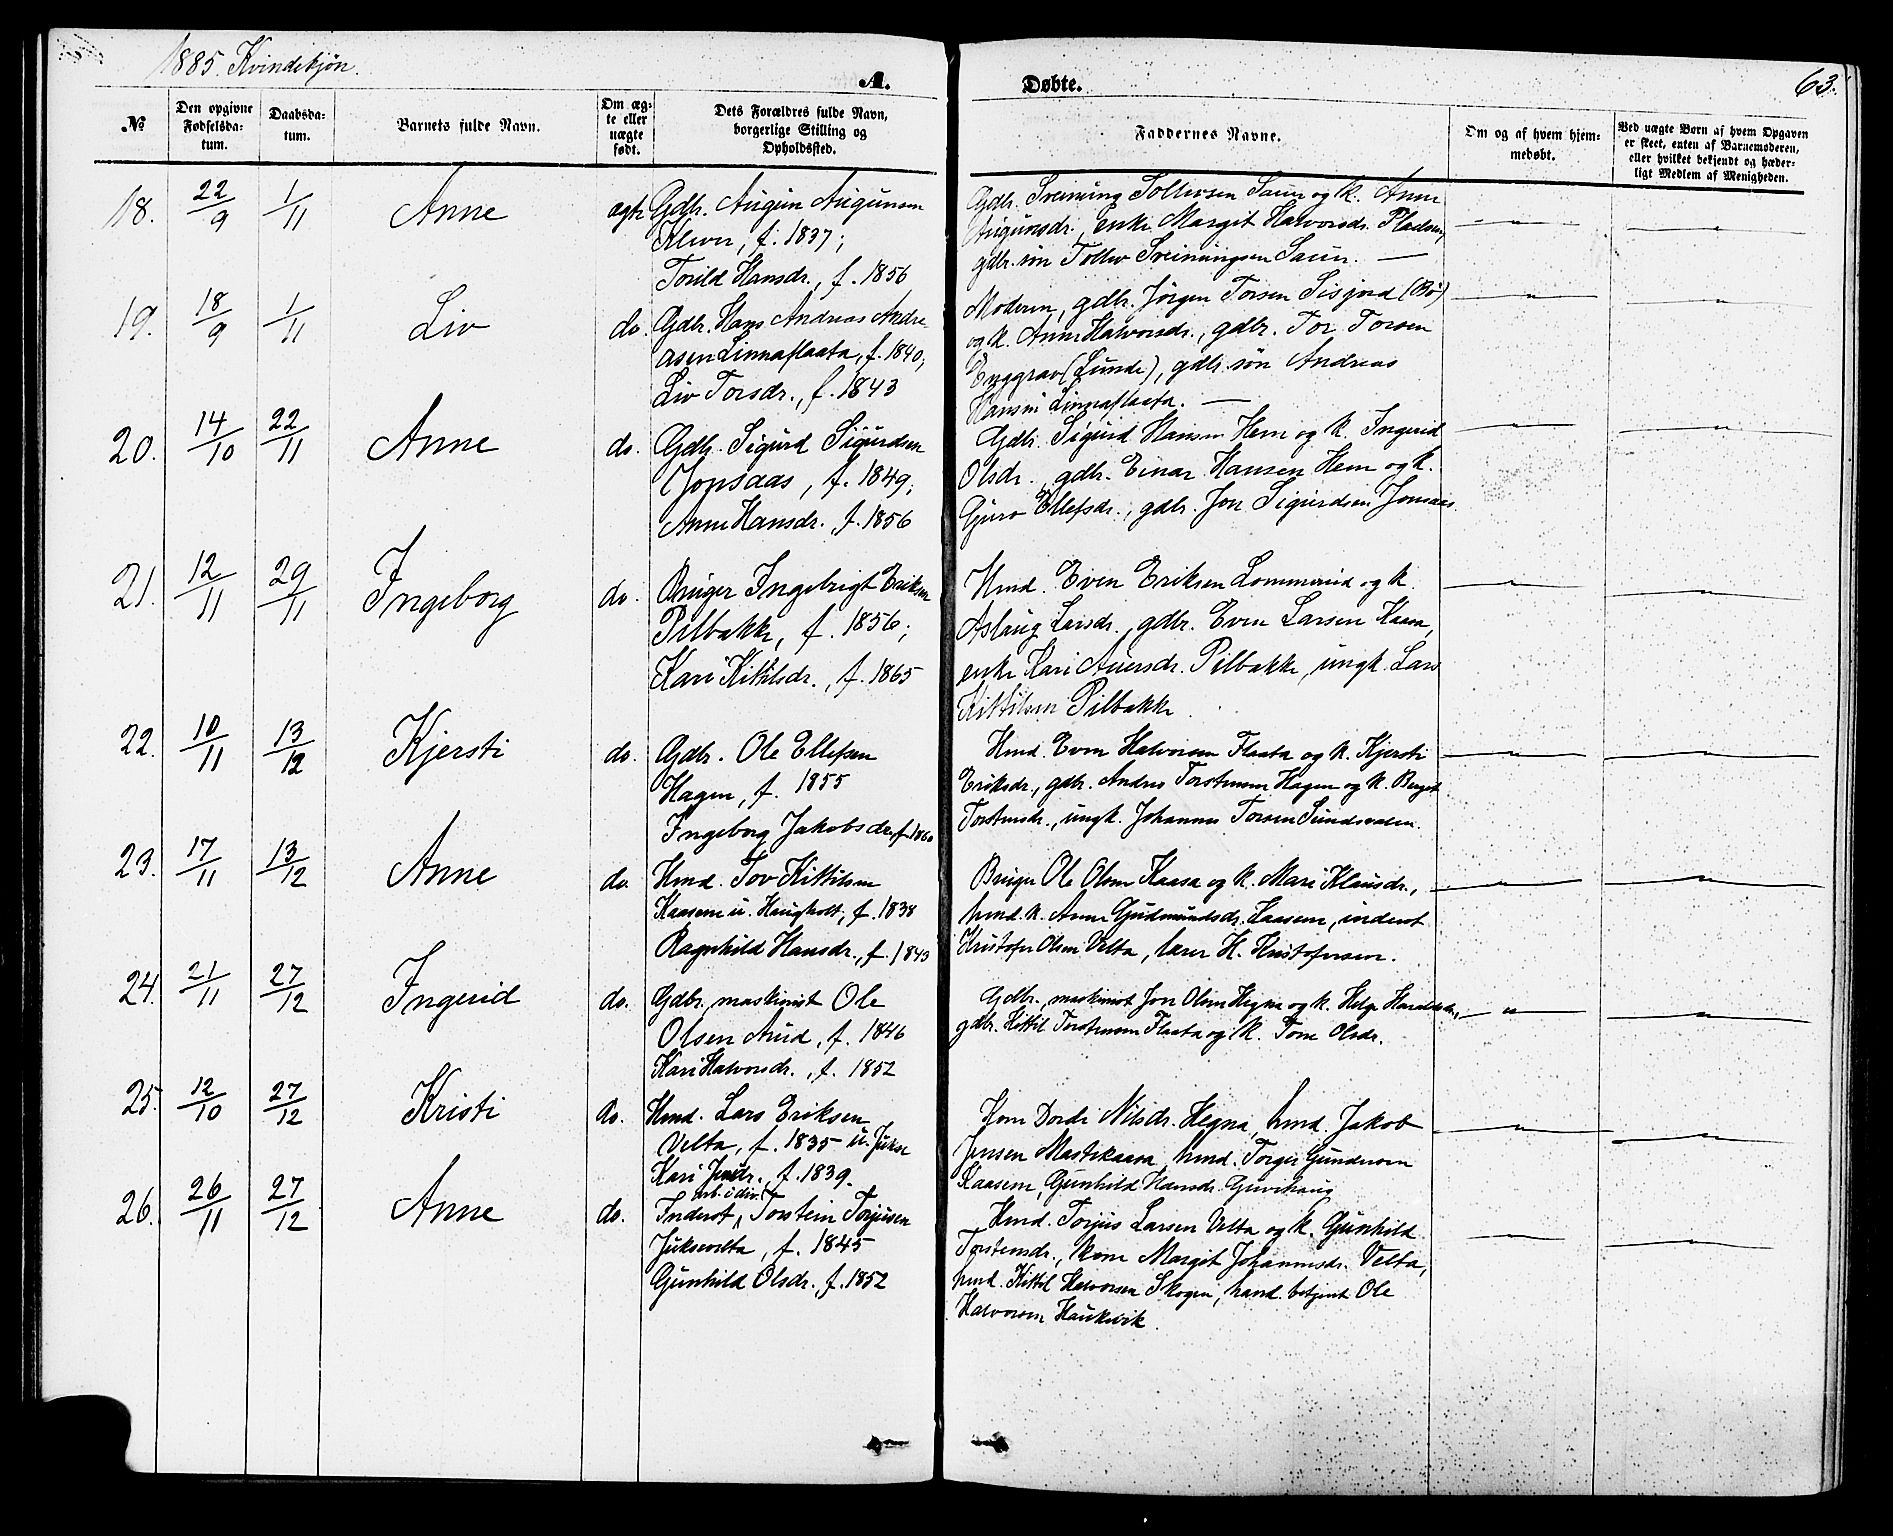 1885. Kvindekjön.
A.
Døbte.
63.
№
Den opgivne Fødselsda-tum.
Daabsda-tum.
Barnets fulde Navn.
Om æg-te eller uægte født.
Dets Forældres fulde Navn, borgerlige Stilling og Opholdssted.
Faddernes Navne.
Om og af hvem hjem-medøbt.
Ved uægte Børn af hvem Opgaven er skeet, enten af Barnemoderen, eller hvilket bekjendt og hæder-ligt Medlem af Menigheden.
18. 22/9 1/11 Anne ægte Gdbr. Augun Augunsen
Klever, f. 1837;
Torild Hansdr., f. 1856
Gdbr. Sveinung Tollevsen Saue og k. Anne
Augunsdr., enke Margit Halvorsdr. Pladsen,
gdbr. søn Tollev Sveinungsen Saue. —
19. 18/9 1/11 Liv do. Gdbr. Hans Andreas Andre-
asen Linnaflaata, f. 1840;
Liv Torsdr., f. 1843
Moderen, gdbr. Jörgen Torsen Sisjord (Bö)
og k. Anne Halvorsdr., gdbr. Tor Torsen
Enggrav (Lunde), gdbr. søn Andreas
Hansen Linnaflaata. —
20. 14/10 22/11 Anne do. Gdbr. Sigurd Sigurdsen
Jonsaas, f. 1849;
Anne Hansdr., f. 1856
Gdbr. Sigurd Hansen Hem og k. Ingerid
Olsdr., gdbr. Einar Hansen Hem og k.
Guro Ellefsdr., gdbr. Jon Sigurdsen Jonsaas.
21. 12/11 29/11 Ingeborg do. Bruger Ingebrigt Eriksen
Pilbakke, f. 1856;
Kari Kittilsdr., f. 1865
Hmd. Even Eriksen Lommerud og k.
Aslaug Larsdr., gdbr. Even Larsen Kaasa,
enke Kari Aversdr. Pilbakke, ungk. Lars
Kittilsen Pilbakke.
22. 10/11 13/12 Kjersti do. Gdbr. Ole Ellefsen
Hagen, f. 1855
Ingeborg Jakobsdr., f. 1860
Hmd. Even Halvorsen Flaata og k. Kjersti
Eriksdr., gdbr. Andres Torstensen Hagen og k. Berget
Torstensdr., ungk. Johannes Torsen Sundsvalen.
23. 17/11 13/12 Anne do. Hmd. Tov Kittilsen
Kaasene u. Haugholt, f. 1838
Ragnhild Hansdr., f. 1843
Bruger Ole Olsen Kaasa og k. Mari Klausdr.,
hmd. k. Anne Gudmundsdr. Kaasene, inderst
Kristofer Olsen Velta, lærer H. Kristofersen.
24. 21/11 27/12 Ingerid do. Gdbr., maskinist Ole
Olsen Aud, f. 1846
Kari Halvorsdr., f. 1852
Gdbr., maskinist Jon Olsen Hegna og k. Helge Haraldsdr.,
gdbr. Kittil Torstensen Flaata og k. Tone Olsdr.
25. 12/10 27/12 Kristi do. Hmd. Lars Eriksen
Velta, f. 1835 u. Jukse
Kari Jensdr., f. 1839.
Kone Dorde Nilsdr. Hegna, hmd. Jakob
Jensen Mastekaasa, hmd. Torger Gundersen
Kaasene, Gunhild Hansdr. Guvihaug
26. 26/11 27/12 Anne do. Inderst, arb. i div. Torstein Torjusen
Juksevelta, f. 1845
Gunhild Olsdr., f. 1852
Hmd. Torjus Larsen Velta og k. Gunhild
Torstensdr., kone Margit Johannesdr. Velta,
hmd. Kittil Halvorsen Skogen, hand. betjent Ole
Halvorsen Haukvik.